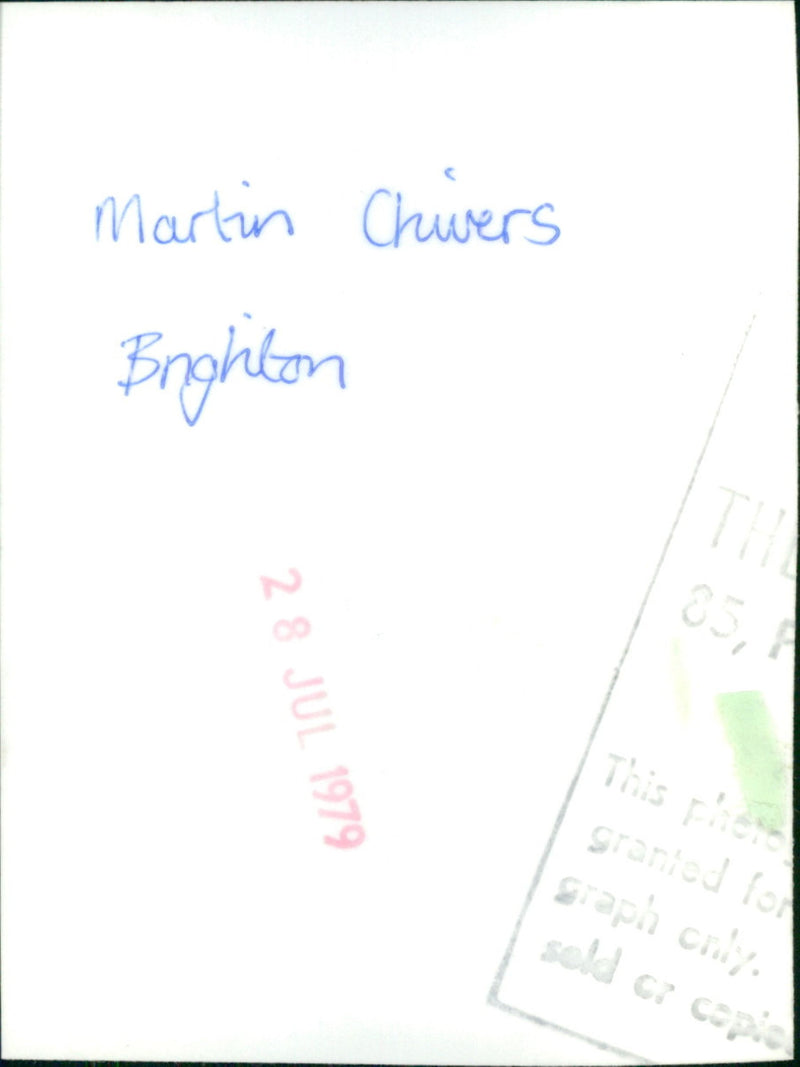 Martin Chivers
Brighton
28 JUL 1979
85,
This
granted for
graph only.
sold or